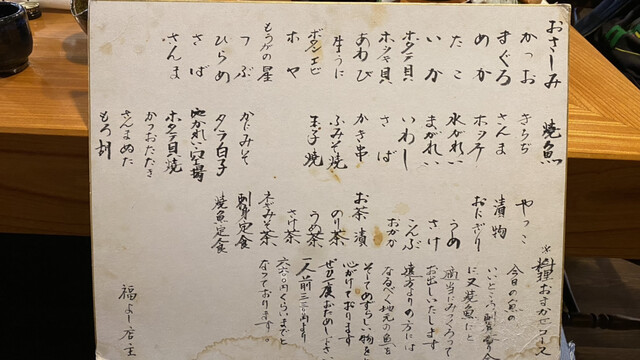 おさしみ
かつお
まぐろ
めか
たこ
いか
ホタテ貝
ホッキ貝
あわび
生うに
ボタンエビ
ホヤ
もうかの星
つぶ
ひらめ
さば
さんま
焼魚
きちぢ
さんま
ホッケ
水がれい
まがれい
いわし
さば
かき串
ふみそ焼
玉子焼
かにみそ
タラ白子
ホタテ貝焼
かつおたたき
さんまぬた
もろ胡
やっこ
漬物
おにぎり
うめ
さけ
こんぶ
おかか
お茶漬
のり茶
うめ茶
さけ茶
本さみそ茶
刺身定食
焼魚定食
*料理おまかせコース
今日の魚の
いいところの刺身盛合
に又焼魚にと
適当にみつくろって
お出しいたします
遠方よりの方には
なるべく地元の魚を
そしてめずらしい物を
心がけております
ぜひ一度おためし下さい
一人前三三〇〇円より
六六〇〇円くらいまでと
なっております。
福よし店主